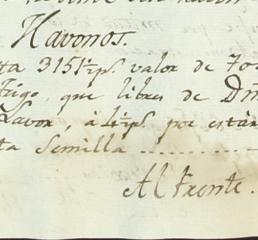 Havonos.
ta 315½ ps. valor de
trigo, que libres de Dm
Lavor, à ps. por estàr
ta Semilla ..........
Al Frente.